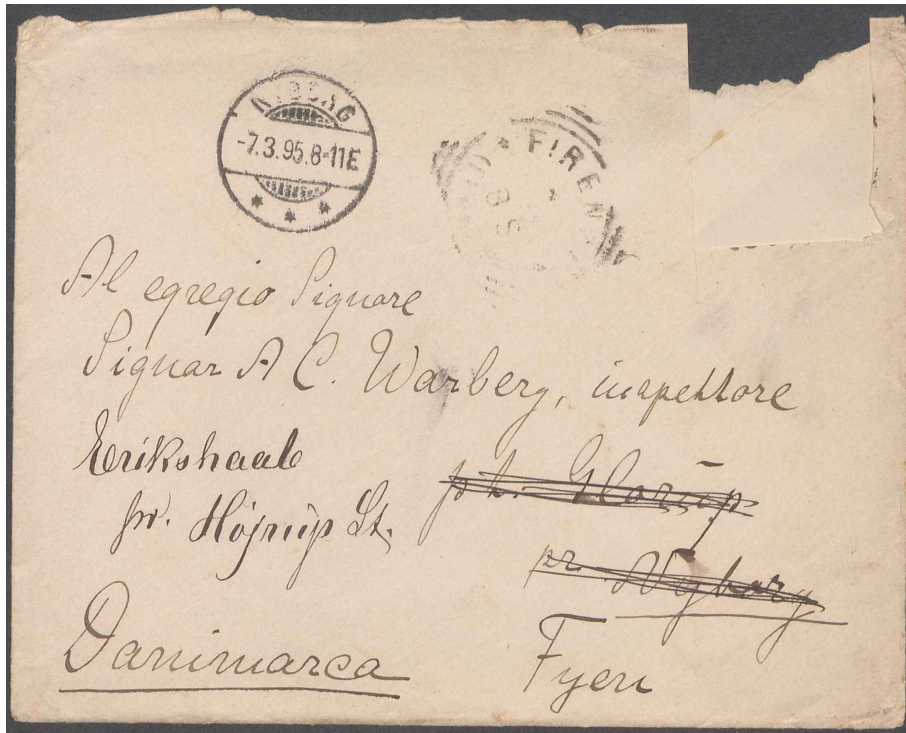 NYBORG
-7.3.95.8-11E
FIREN
Al egregio Signore
Signor A C. Warberg, inspettore
Erikshaab
pr. Højrup St.
pt. Glorup
pr. Nyborg
Danimarca
Fyen